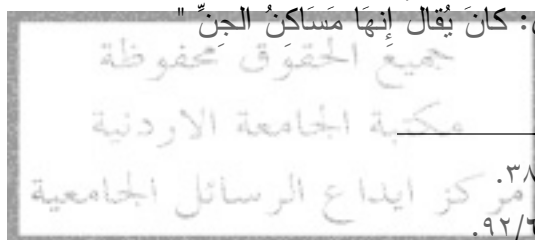 : كانَ يُقال إِنهَا مَسَاكنُ الجنِّ "
جميع الحقوق محفوظة
مكتبة الجامعة الاردنية
٣٨.
مركز ايداع الرسائل الجامعية
٩٢/٦.